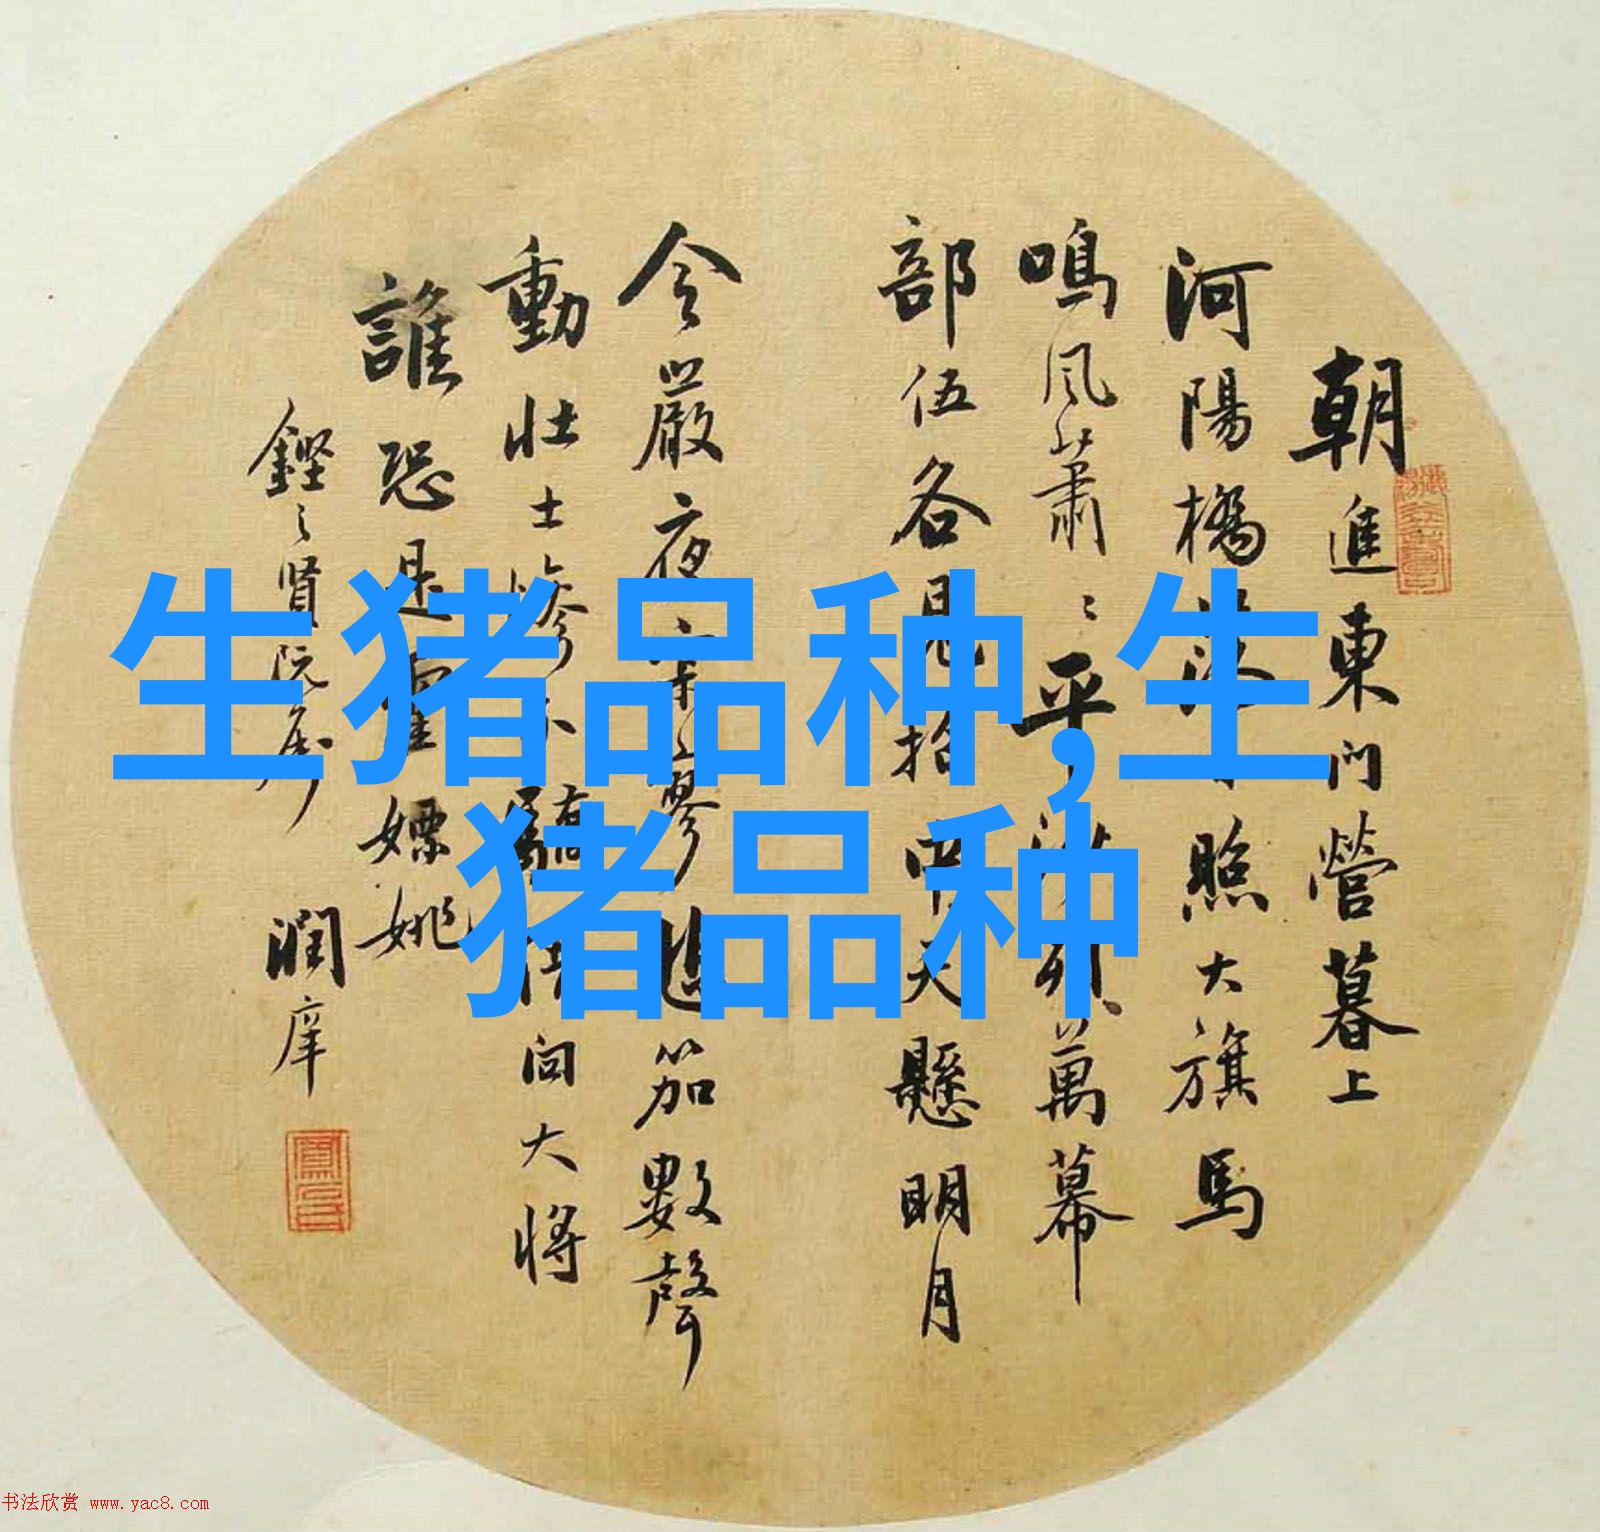 朝進東門營暮上
河陽橋落日照大旗馬
鳴風蕭〻平沙列萬幕
部伍各見招中天懸明月
令嚴夜寂寥悲笳數聲
動壯士慘不驕借問大將
誰恐是霍嫖姚
鏗之賢阮屬
潤庠
生猪品种,生
猪品种
书法欣赏 www.yac8.com